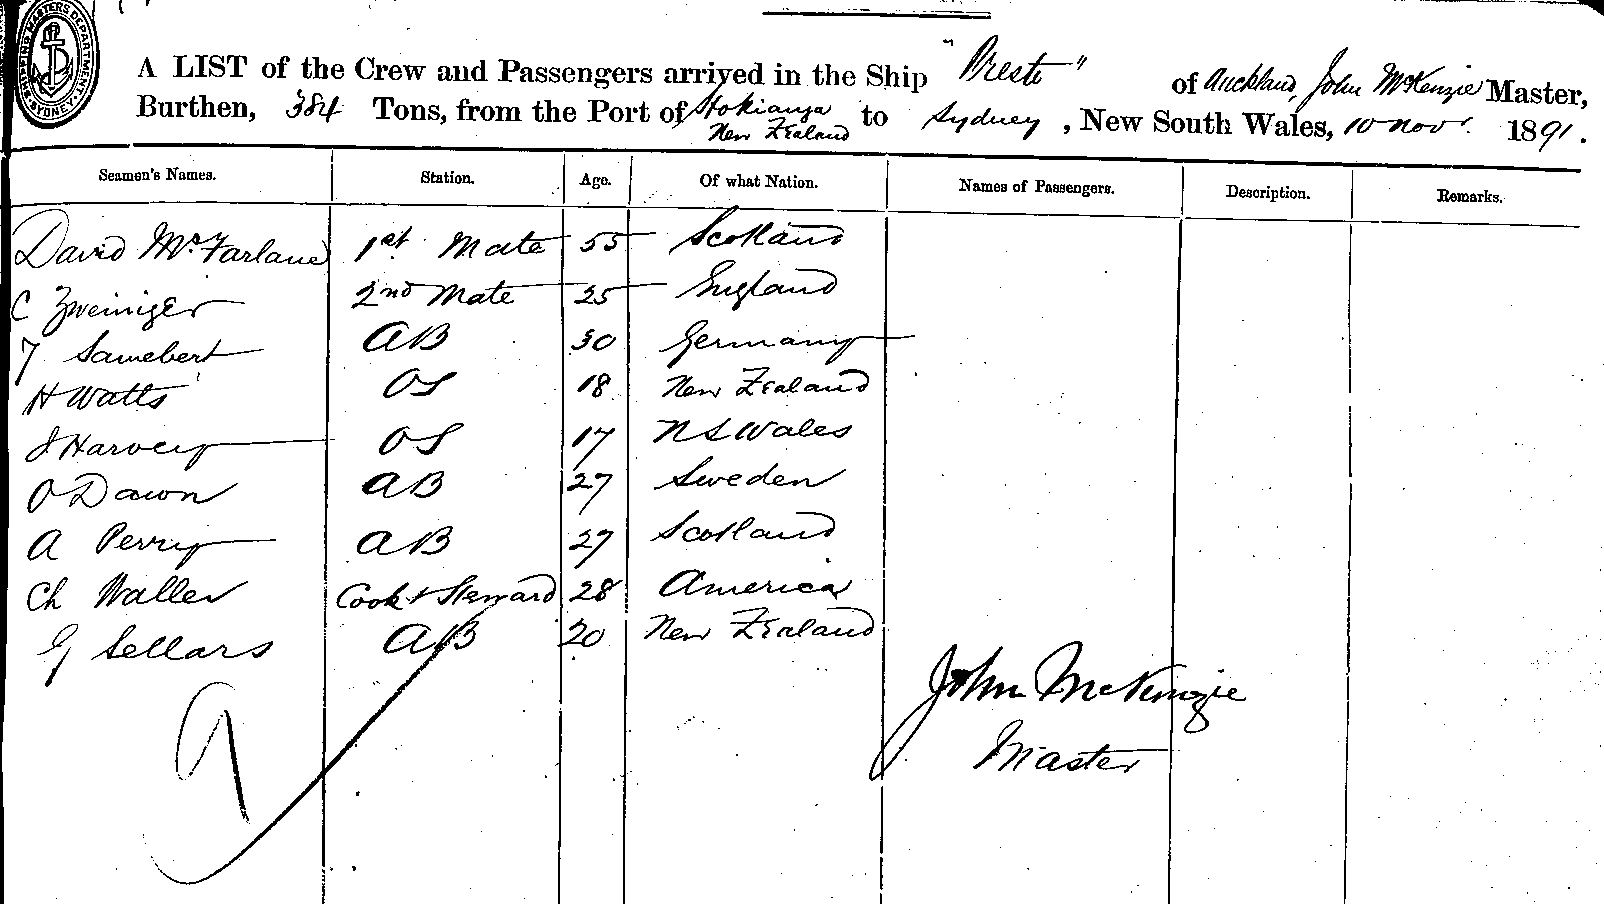 SHIPPING MASTERS DEPARTMENT. SYDNEY.
A LIST of the Crew and Passengers arrived in the Ship "Presto" of Auckland, John McKenzie Master,
Burthen, 384 Tons, from the Port of Hokianga New Zealand to Sydney, New South Wales, 10 Novr. 1891.
Seamen's Names. Station. Age. Of what Nation. Names of Passengers. Description. Remarks.
David McFarland 1st Mate 55 Scotland
C Zweiniger 2nd Mate 25 England
Samebert AB 30 Germany
H Watts OS 18 New Zealand
J Harvey OS 17 N S Wales
O Dawn AB 27 Sweden
A Perry AB 27 Scotland
Ch Waller Cook & Steward 28 America
G Sellars AB 20 New Zealand
John McKenzie
Master
9